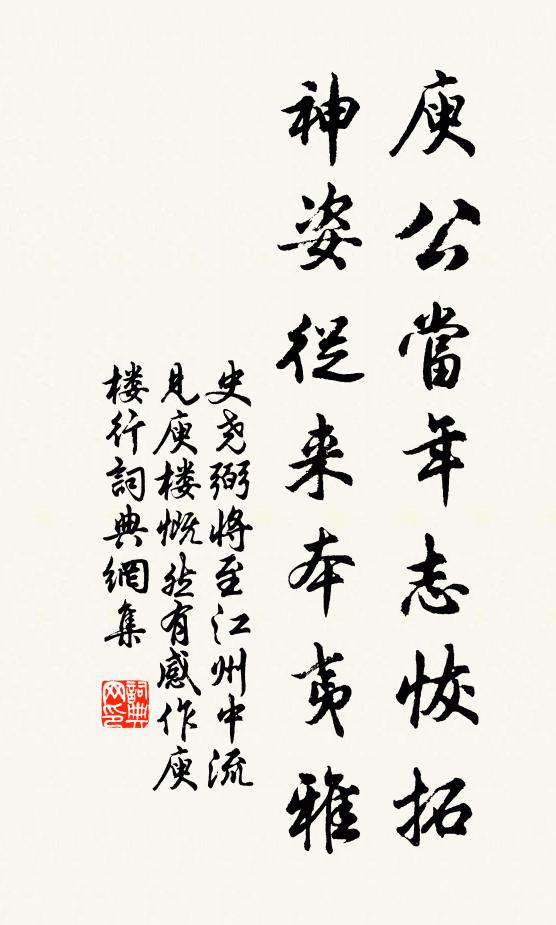 庾公當年志恢拓
神姿從来本夷雅
史尧弼將至江州中流
見庾楼慨然有感作庾
楼行詞典網集
詞典
网印